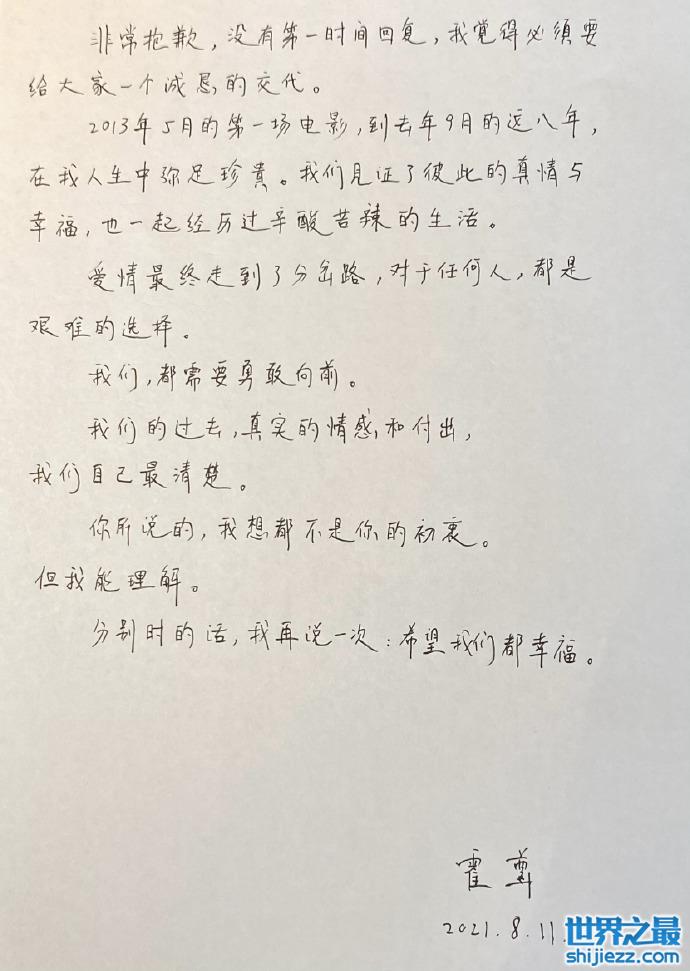 非常抱歉，没有第一时间回复，我觉得必须要
给大家一个诚恳的交代。
2013年5月的第一场电影，到去年9月的近八年，
在我人生中弥足珍贵。我们见证了彼此的真情与
幸福，也一起经历过辛酸苦辣的生活。
爱情最终走到了分岔路，对于任何人，都是
艰难的选择。
我们，都需要勇敢向前。
我们的过去，真实的情感和付出，
我们自己最清楚。
你所说的，我想都不是你的初衷。
但我能理解。
分别时的话，我再说一次：希望我们都幸福。
霍尊
2021.8.11.
世界之最
shijiezz.com